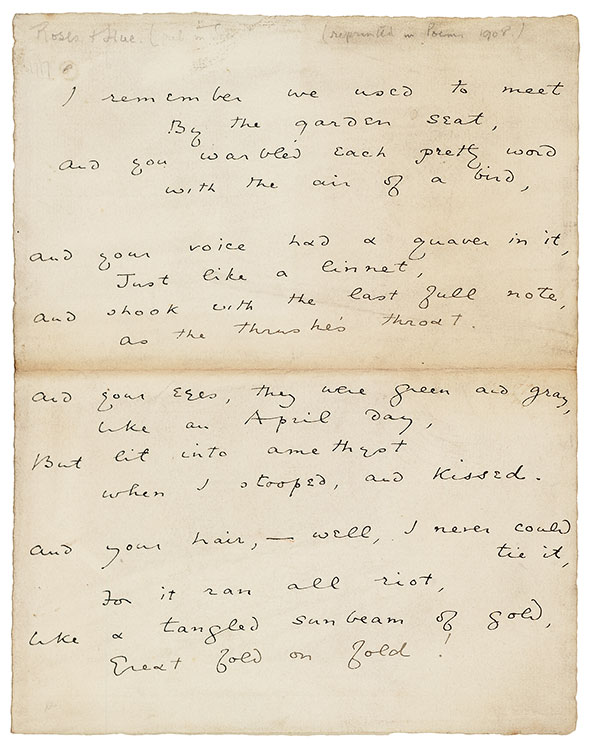 Roses & Rue. (
(reprinted in Poems 1908.)
I remember we used to meet
By the garden seat,
and you warbled each pretty word
with the air of a bird,
and your voice had a quaver in it,
Just like a linnet,
and shook with the last full note,
as the thrush's throat.
and your eyes, they were green and gray,
like an April day,
But lit into amethyst
when I stooped, and kissed.
and your hair, — well, I never could
tie it,
For it ran all riot,
like a tangled sunbeam of gold,
Great fold on fold!